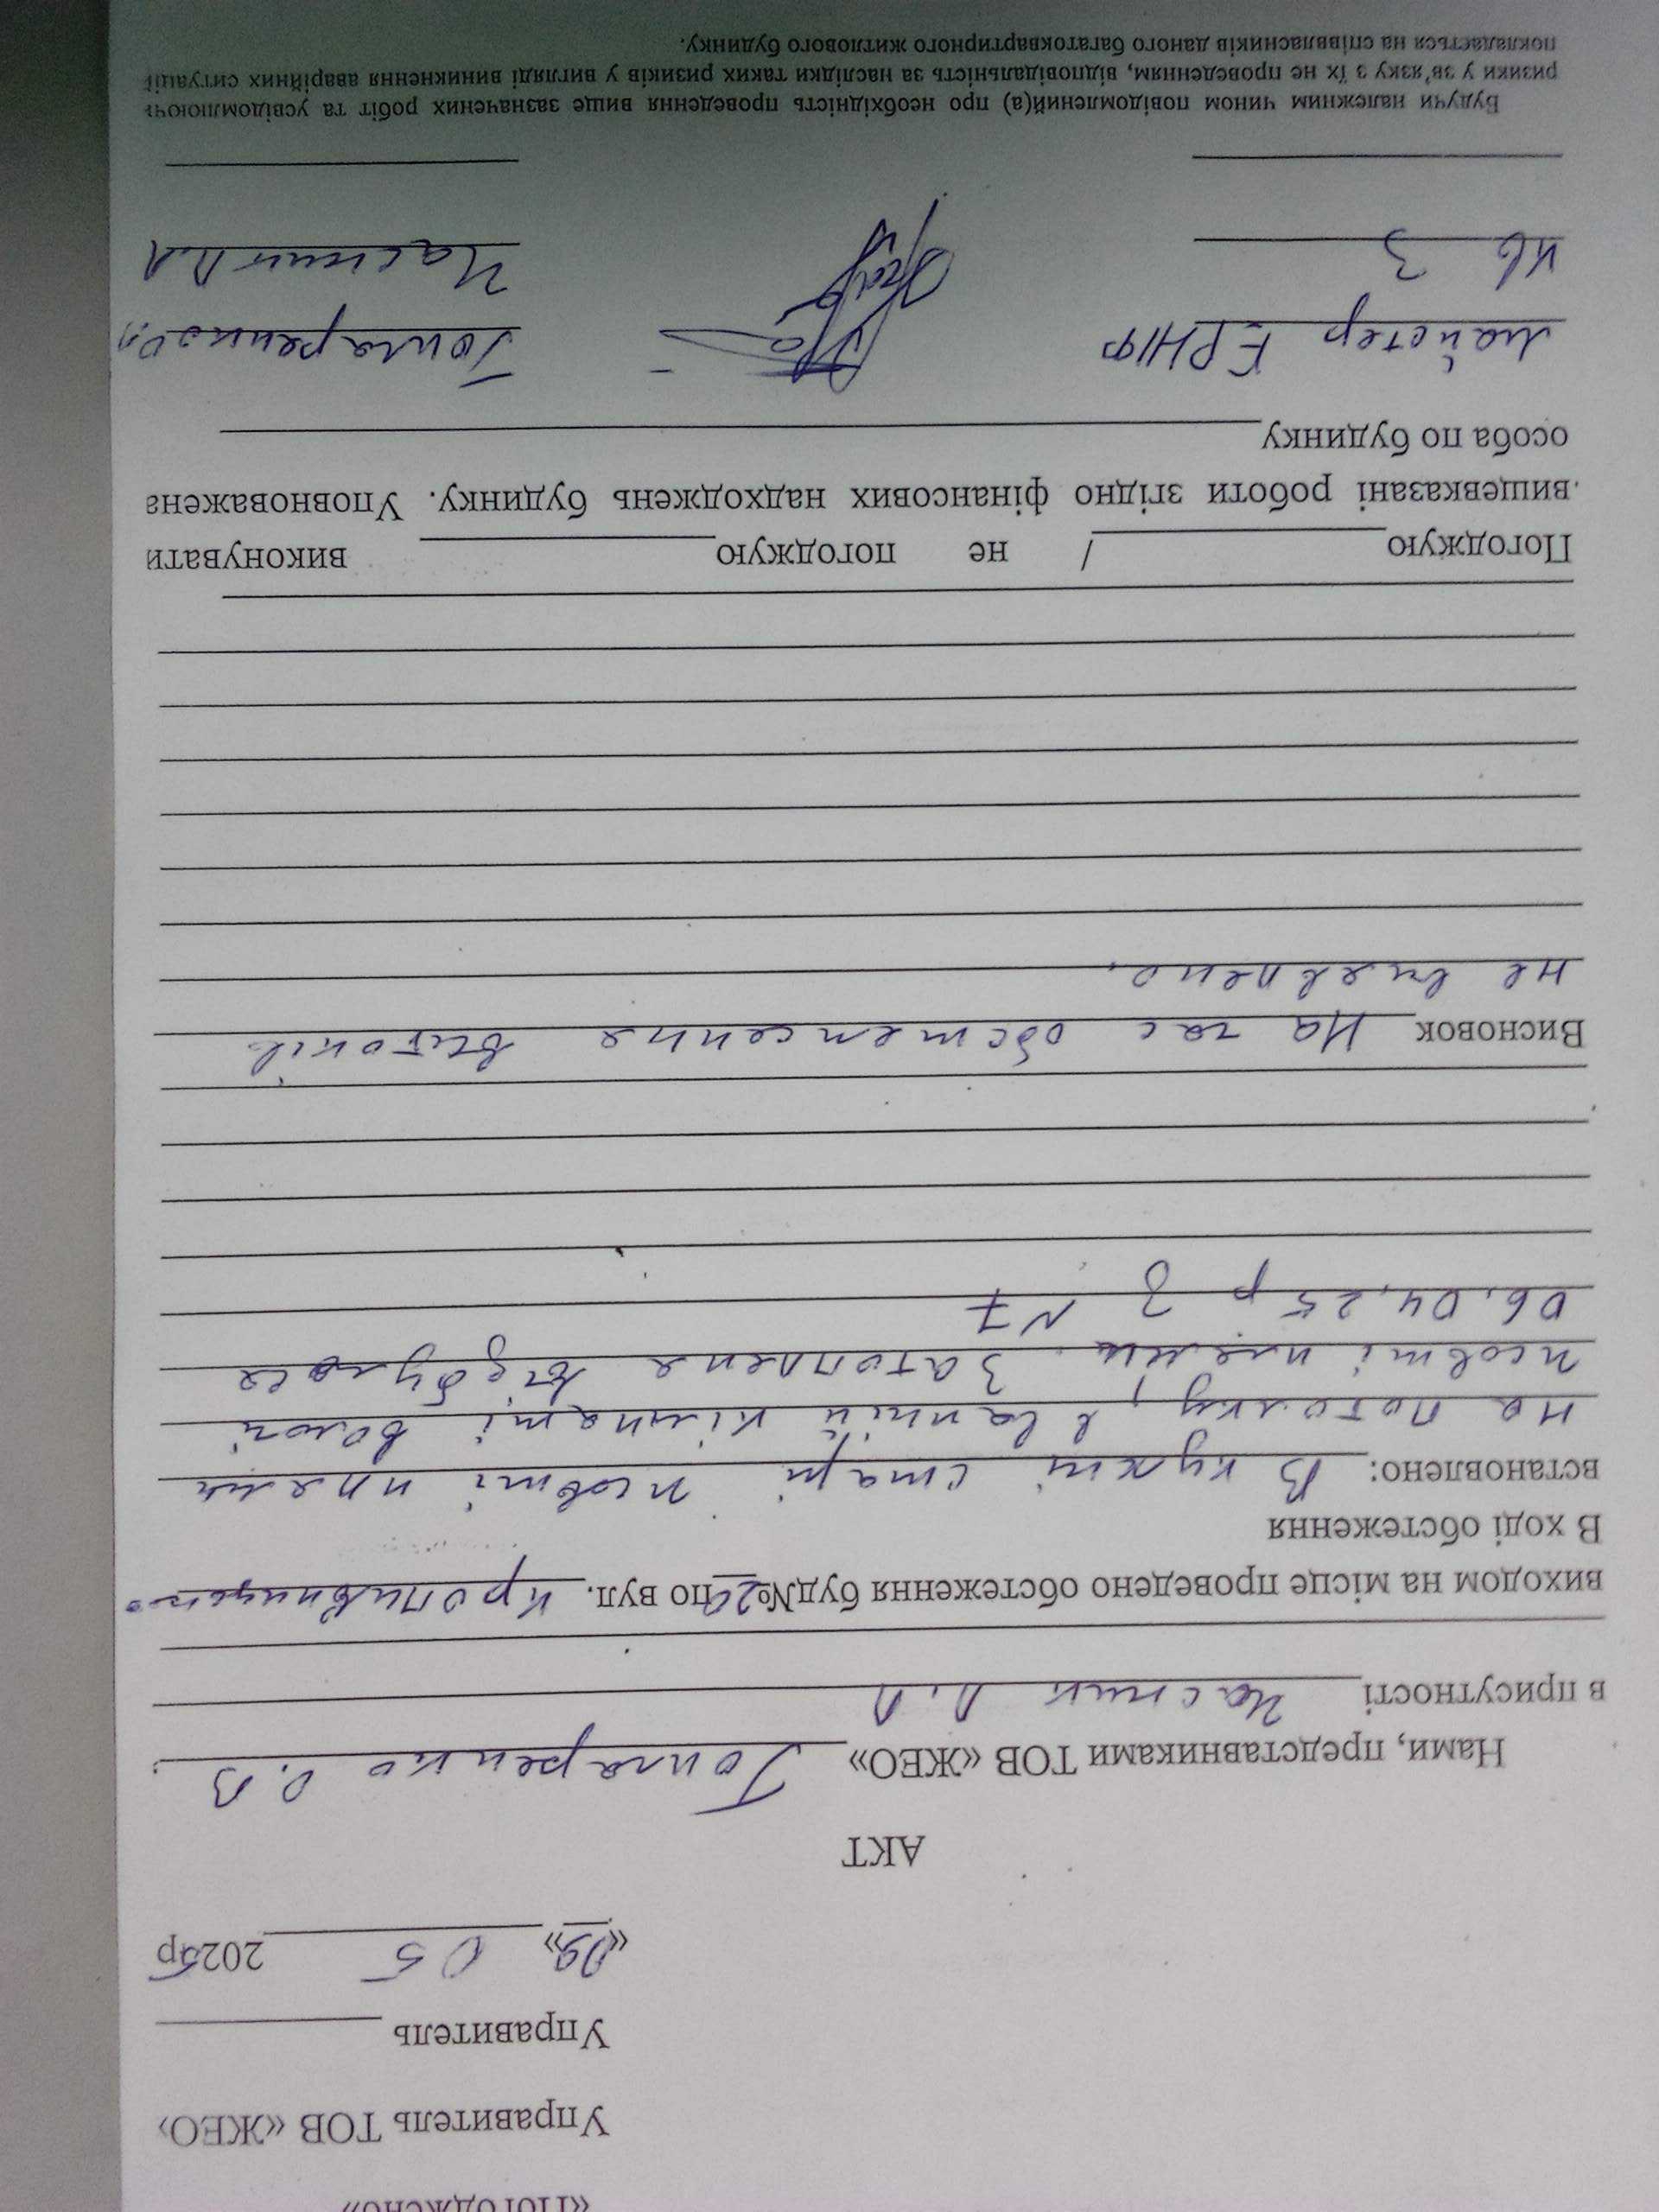 «Погоджено»
Управитель ТОВ «ЖЕО»
Управитель
«09» 05 2025р
АКТ
Нами, представниками ТОВ «ЖЕО» Гончаренко О.В
в присутності Часник Л.Л
виходом на місце проведено обстеження буд№20 по вул. Кропивницького
В ході обстеження
встановлено: В кухні старі жовті плями
на потолку, в ванній кімнаті вологі
жовті плями. Затоплення відбулося
06.04.25 р з N7
Висновок На час обстеження витоків
не виявлено.
Погоджую / не погоджую виконувати
вищевказані роботи згідно фінансових надходжень будинку. Уповноважена
особа по будинку
майстер Гончаренко
кв 3 Часник Л.Л
Будучи належним чином повідомлений(а) про необхідність проведення вище зазначених робіт та усвідомлюючи
ризики у зв'язку з їх не проведенням, відповідальність за наслідки таких ризиків у вигляді виникнення аварійних ситуацій
покладається на співвласників даного багатоквартирного житлового будинку.